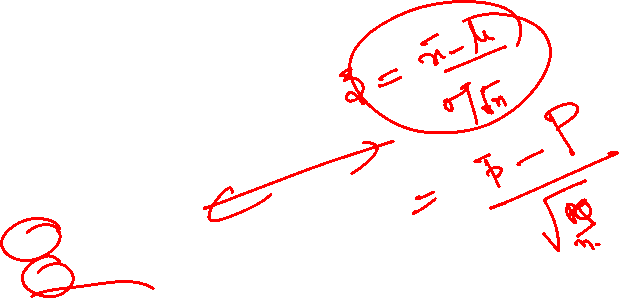 z = x̄ - μ / σ/√n
= p̄ - P / √PQ/n